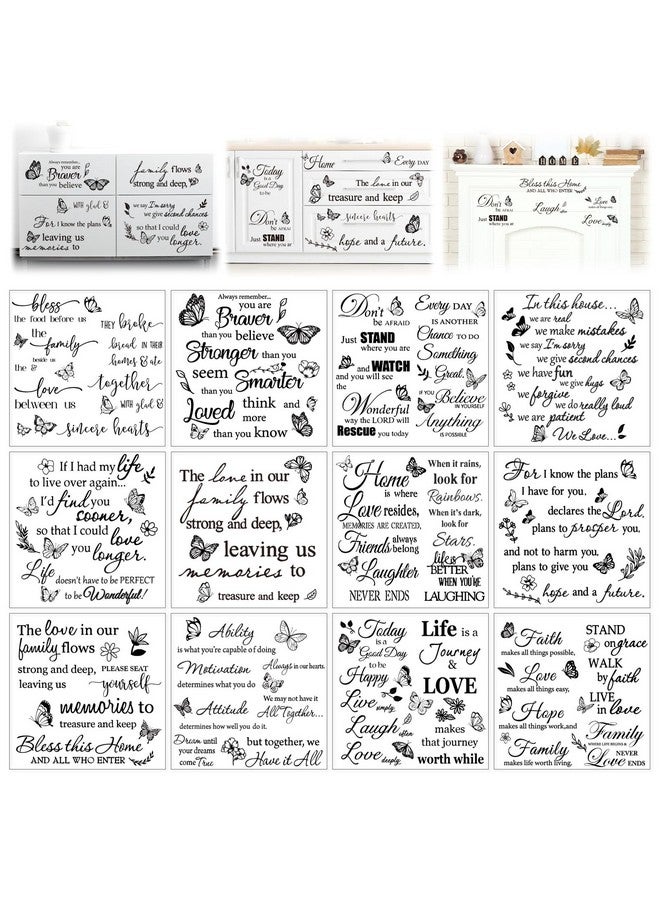 Always remember...
you are
Braver
than you believe
family flows
strong and deep,
WITH glad &
For I know the plans
leaving us
memories to
we say I'm sorry
we give second chances
so that I could love
longer.
Today
is a
Good Day
to be
Don't
BE AFRAID
Just STAND
where you are
Home
Every DAY
The love in our
treasure and keep
sincere hearts
hope and a future.
HOME
Bless this Home
AND ALL WHO ENTER
Don't
BE AFRAID
Just STAND
where you are
Laugh often
Love
makes all things easy,
Love deeply,
bless
the food before us
the
family
beside us
the &
love
between us
THEY broke
bread IN THEIR
homes & ate
together
WITH glad &
sincere hearts
Always remember...
you are
Braver
than you believe
Stronger than you
seem
Smarter
than you
Loved
think and
more
than you know
Don't
BE AFRAID
Just STAND
where you are
and WATCH
and you will see
the
Wonderful
way the LORD will
Rescue you today
Every DAY
IS ANOTHER
Chance TO DO
Something
Great,
IF YOU
Believe
IN YOURSELF
Anything
IS POSSIBLE
In this house...
we are real
we make mistakes
we say I'm sorry
we give second chances
we have fun
we give hugs
we forgive
we do really loud
we are patient
We Love...
If I had my life
to live over again...
I'd find you
sooner,
so that I could
love
you longer.
Life
doesn't have to be PERFECT
to be Wonderful!
The love in our
family flows
strong and deep,
leaving us
memories to
treasure and keep
Home
is where
Love resides,
MEMORIES ARE CREATED,
Friends always
belong
Laughter
NEVER ENDS
When it rains,
look for
Rainbows.
When it's dark,
look for
Stars.
life is
BETTER
WHEN YOU'RE
LAUGHING
For I know the plans
I have for you.
declares the Lord,
plans to prosper you.
and not to harm you.
plans to give you
hope and a future.
The love in our
family flows
strong and deep,
leaving us
PLEASE SEAT
yourself
memories to
treasure and keep
Bless this Home
AND ALL WHO ENTER
Ability
is what you're capable of doing
Motivation
determines what you do
Attitude
determines how well you do it.
Dream until
your dreams
come True
Always in our hearts.
We may not have it
All Together...
but together, we
Have it All
Today
is a
Good Day
to be
Happy
Live
simply,
Laugh often
Love deeply,
Life is a
Journey
&
LOVE
makes
that journey
worth while
Faith
makes all things possible,
Love
makes all things easy,
Hope
makes all things work,and
Family
makes life worth living.
STAND
on grace
WALK
by faith
LIVE
in love
Family
WHERE LIFE BEGINS &
NEVER
Love ENDS